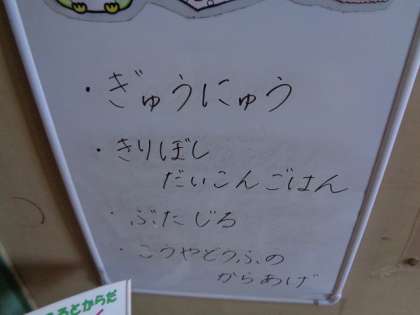 ・ぎゅうにゅう
・きりぼし
だいこんごはん
・ぶたじる
・こうやどうふの
からあげ
ろとからだ